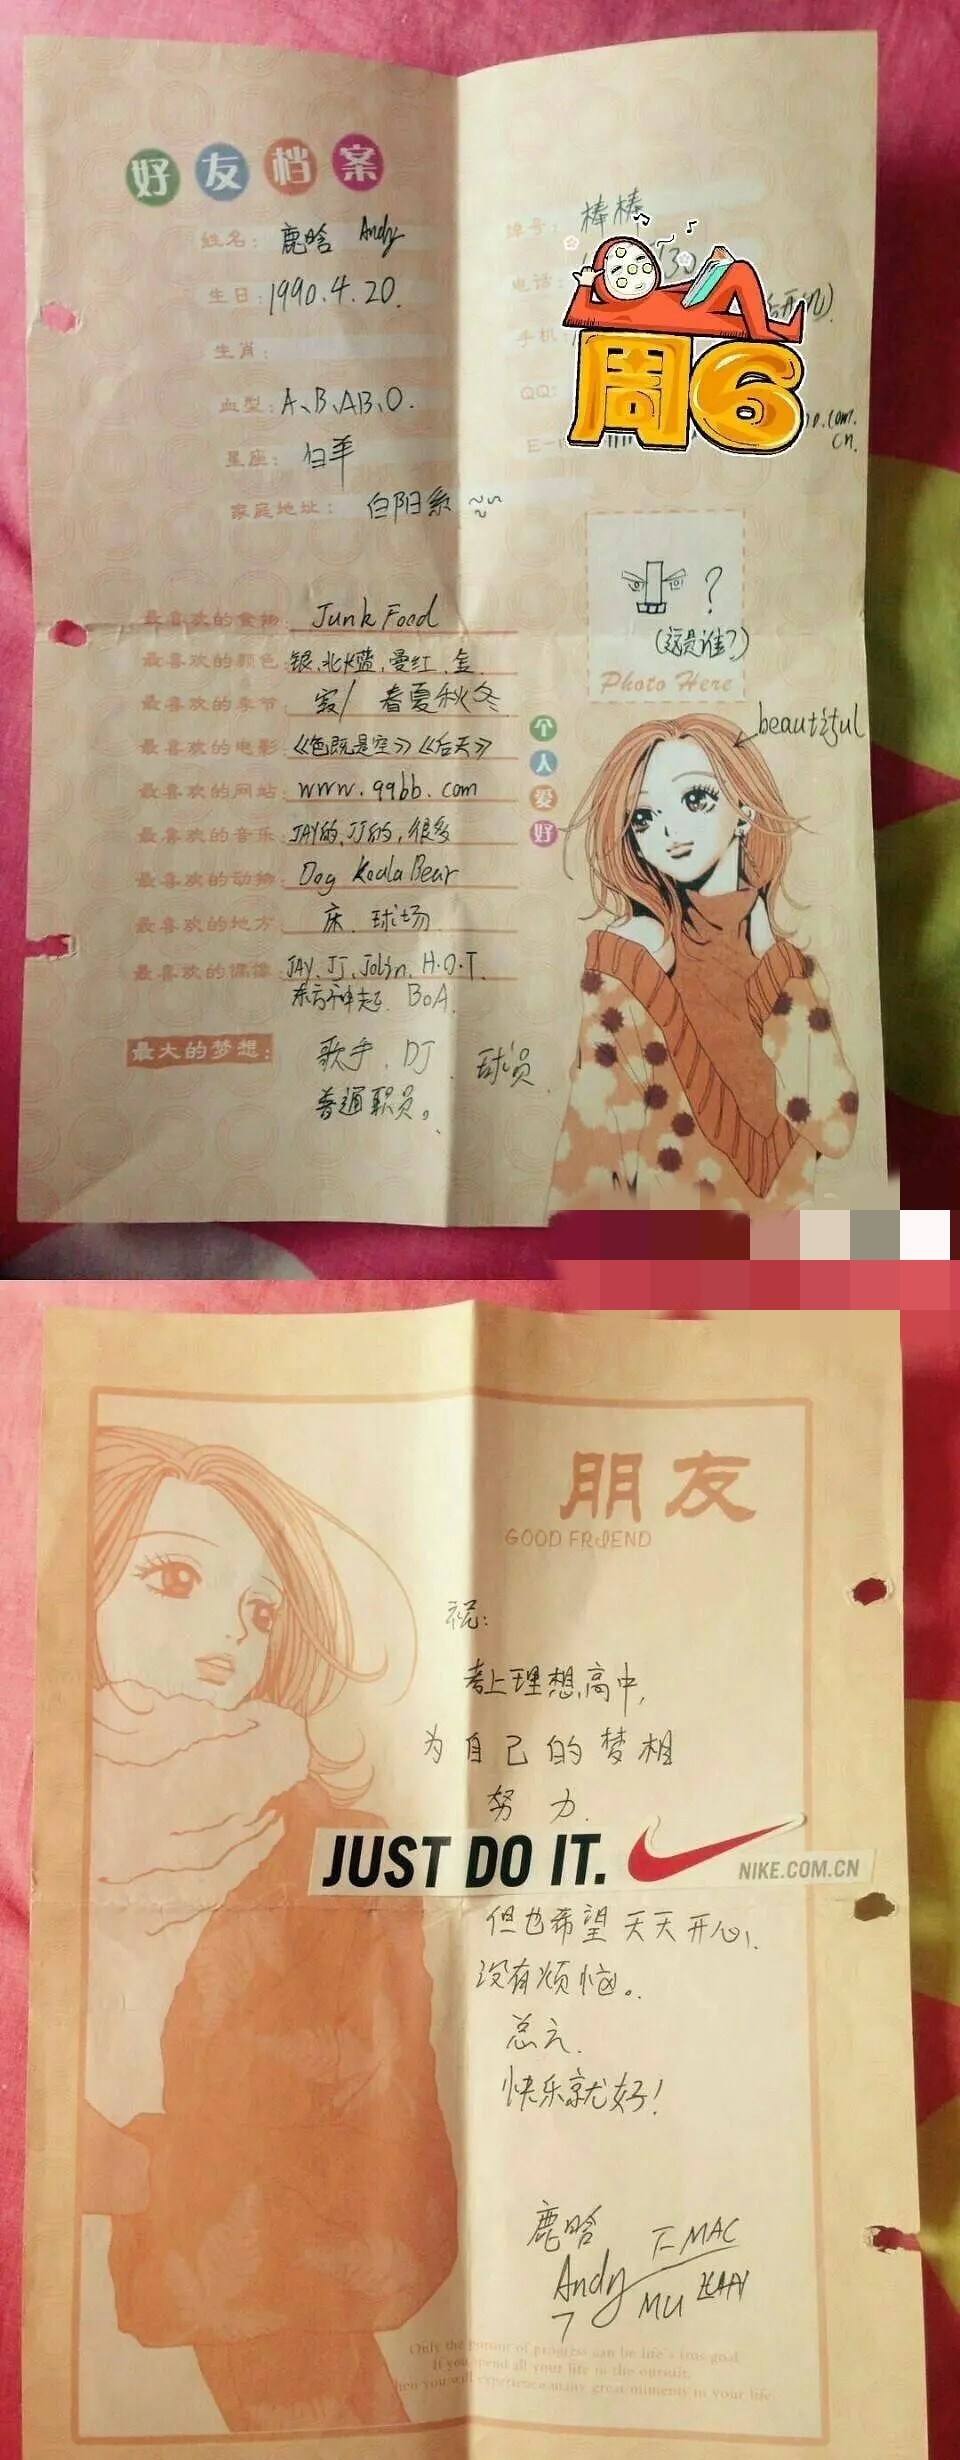 好友档案
姓名: 鹿晗 Andy
生日: 1990.4.20.
生肖:
血型: A、B、AB、O.
星座: 白羊
家庭地址: 白阳系
绰号: 棒棒
电话:
手机
QQ:
周6
.com.
cn.
最喜欢的食物: Junk Food
最喜欢的颜色: 银、北大蓝、曼红、金
最喜欢的季节: 春夏秋冬
最喜欢的电影: 《色既是空》《后天》
最喜欢的网站: www.99bb.com
最喜欢的音乐: JAY的、JJ的,很多
最喜欢的动物: Dog Koala Bear
最喜欢的地方: 床、球场
最喜欢的偶像: JAY、JJ、Jolin、H.O.T.
东方神起、BoA.
最大的梦想: 歌手、DJ、球员
普通职员。
?
(这是谁?)
Photo Here
beautiful
个人爱好
朋友
GOOD FRIEND
祝:
考上理想高中,
为自己的梦相
努力.
JUST DO IT.
NIKE.COM.CN
但也希望天天开心、
没有烦恼。
总之.
快乐就好!
鹿晗
Andy
7
T-MAC
MU
Only the pursuit of progress can be life's true goal
If you spend all your life in the pursuit,
then you will experience many great moments in your life